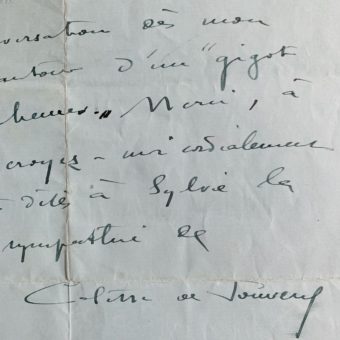 versation dès mon
autour d'un "gigot
heures". Merci, à
croyez-moi cordialement
dites à Sylvie la
sympathie de
Colette de Jouvenel